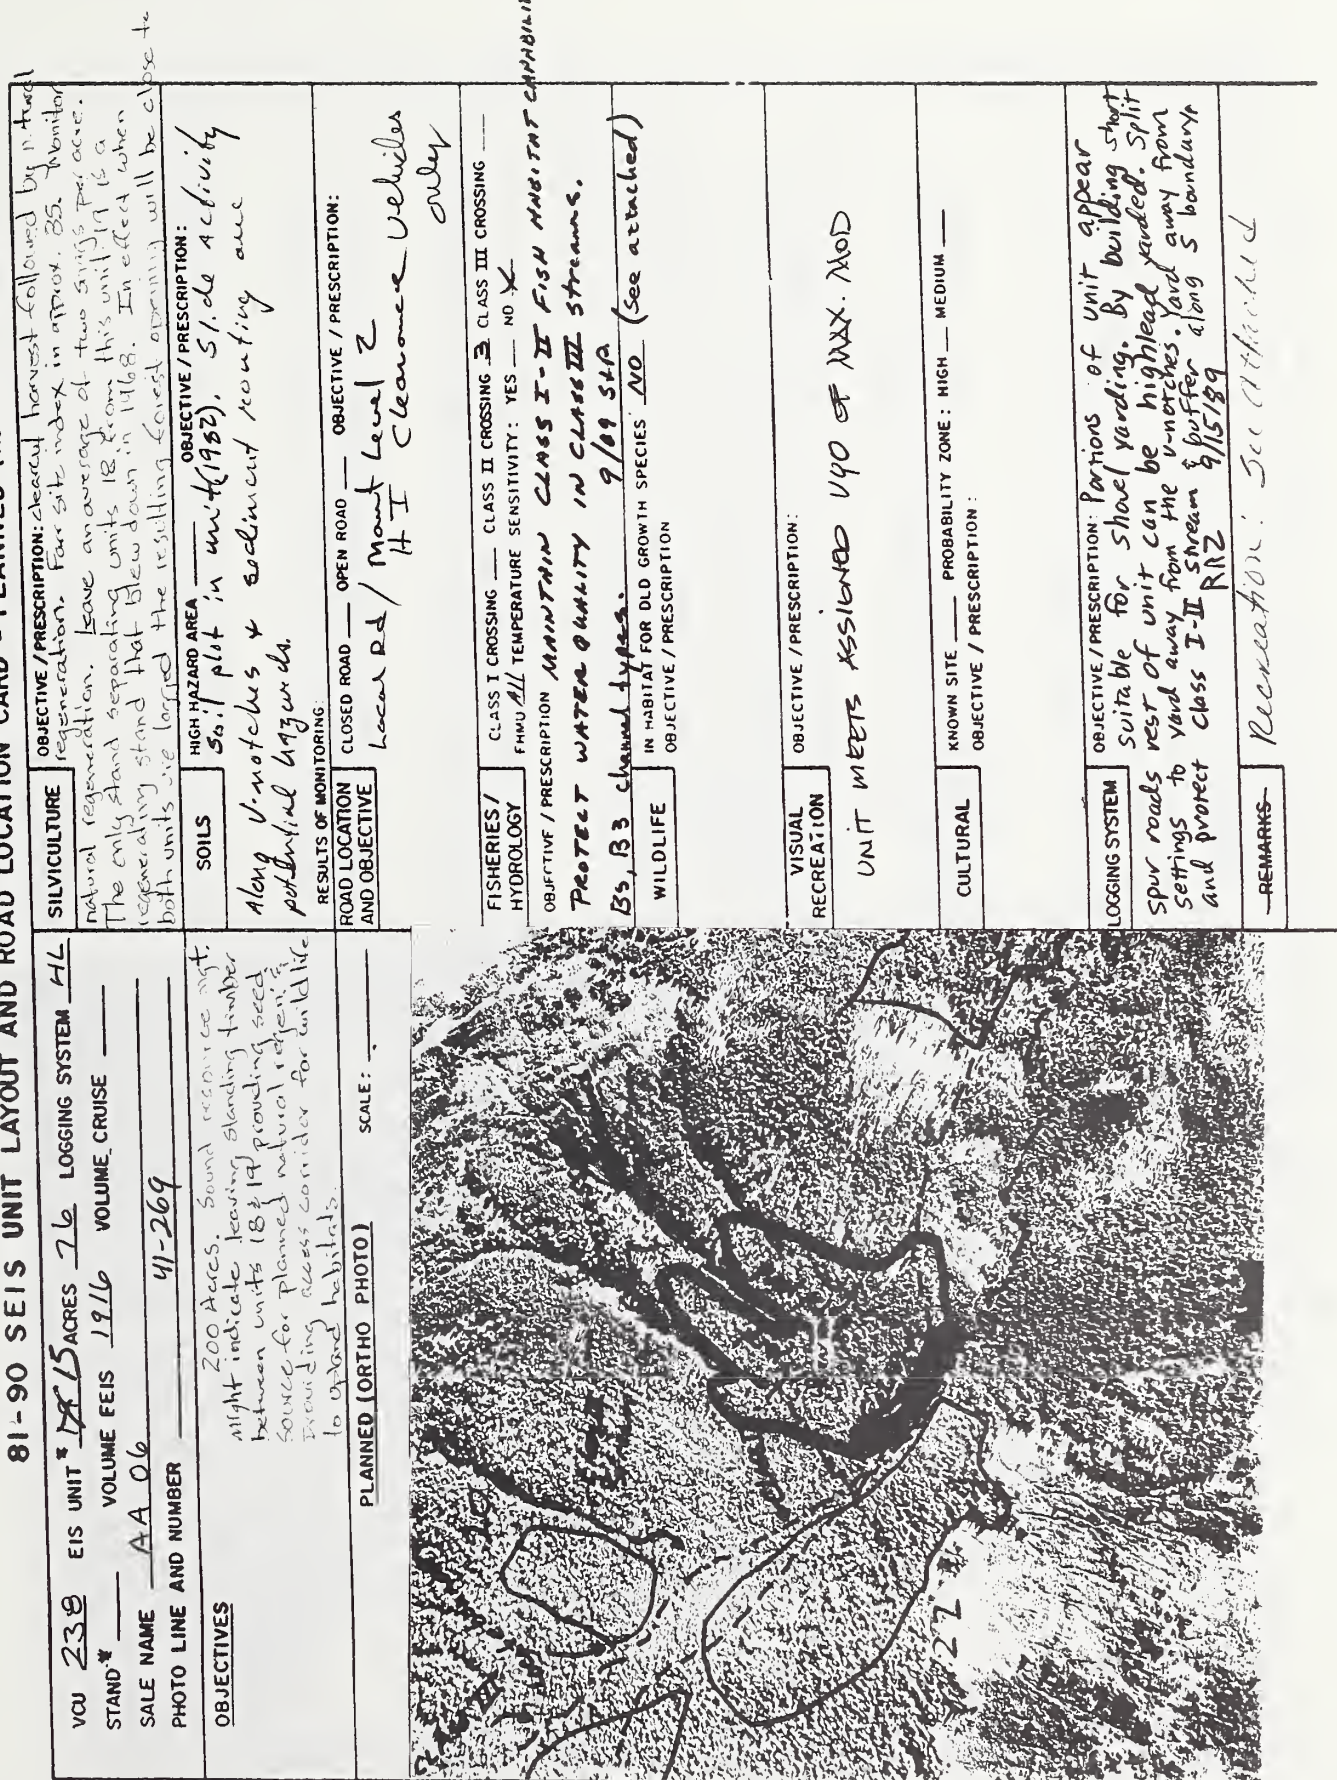 81-90 SEIS UNIT LAYOUT AND ROAD LOCATION CARD - PLANNED
VCU 238 EIS UNIT # 15 ACRES 76 LOGGING SYSTEM HL
STAND # ___ VOLUME EEIS 1916 VOLUME CRUISE ___
SALE NAME AA 06
PHOTO LINE AND NUMBER 41-269
OBJECTIVES
200 Acres. Sound resource mgt.
might indicate leaving standing timber
between units 18 & 19 providing seed
source for planned natural regen. &
providing access corridor for wildlife
to upland habitats.
PLANNED (ORTHO PHOTO) SCALE: ___
22
SILVICULTURE
OBJECTIVE / PRESCRIPTION: clearcut harvest followed by natural
regeneration. Farr site index is approx. 85. Monitor
natural regeneration. Leave an average of two snags per acre.
The only stand separating units 18 from this unit 19 is a
regenerating stand that blew down in 1968. In effect when
both units are logged the resulting forest opening will be close to
SOILS
HIGH HAZARD AREA ___ OBJECTIVE / PRESCRIPTION:
Soil plot in unit (1982). Slide activity
Along V-notches & sediment routing are
potential hazards.
RESULTS OF MONITORING:
ROAD LOCATION AND OBJECTIVE
CLOSED ROAD ___ OPEN ROAD ___ OBJECTIVE / PRESCRIPTION:
Local Rd / Maint Level 2
HI Clearance Vehicles
only
FISHERIES / HYDROLOGY
CLASS I CROSSING ___ CLASS II CROSSING 3 CLASS III CROSSING ___
FHMU All TEMPERATURE SENSITIVITY: YES ___ NO X
OBJECTIVE / PRESCRIPTION MAINTAIN CLASS I-II FISH HABITAT CAPABILITY
PROTECT WATER QUALITY IN CLASS III streams.
B5, B3 channel types. 9/89
WILDLIFE
IN HABITAT FOR OLD GROWTH SPECIES: NO (See attached)
OBJECTIVE / PRESCRIPTION
VISUAL RECREATION
OBJECTIVE / PRESCRIPTION:
UNIT MEETS ASSIGNED VQO OF MAX. MOD
CULTURAL
KNOWN SITE ___ PROBABILITY ZONE: HIGH ___ MEDIUM ___
OBJECTIVE / PRESCRIPTION:
LOGGING SYSTEM
OBJECTIVE / PRESCRIPTION: Portions of unit appear
suitable for shovel yarding. By building short
spur roads rest of unit can be highlead yarded. Split
settings to yard away from the v-notches. Yard away from
and protect class I-II stream & buffer along S boundary.
RRZ 9/15/89
REMARKS
Recreation: See Attached